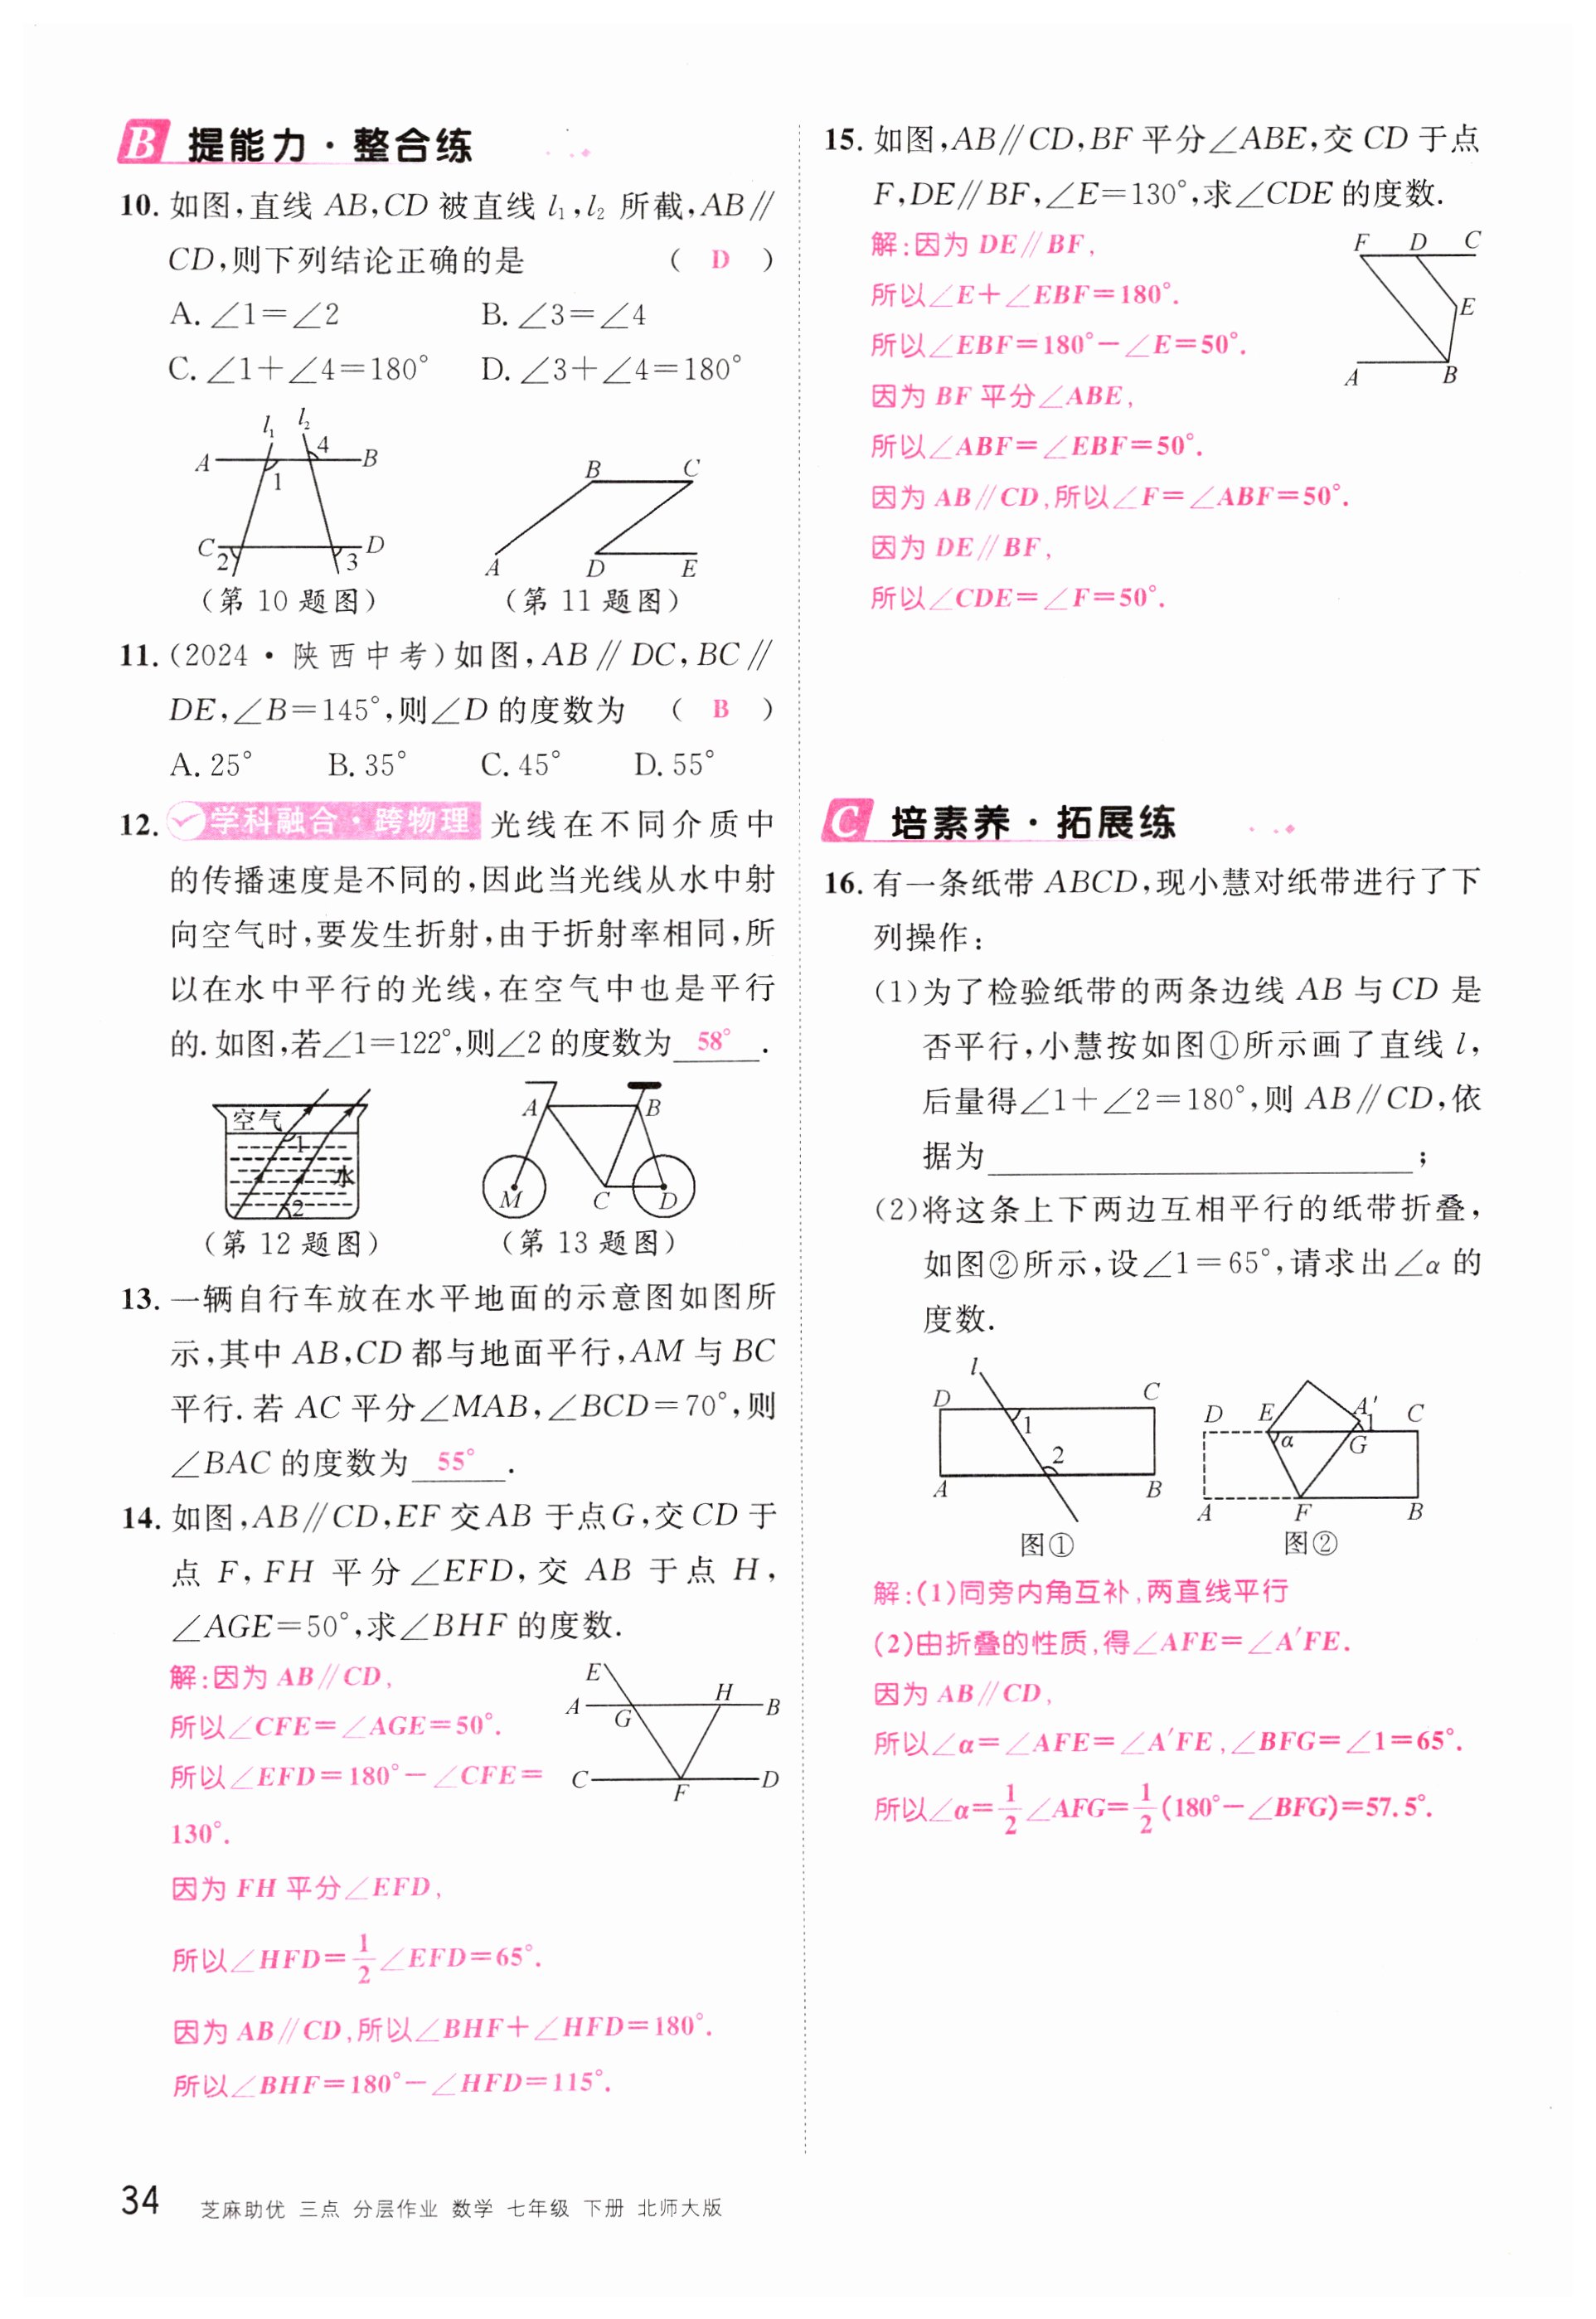 B 提能力·整合练
10. 如图,直线 AB,CD 被直线 l₁,l₂ 所截,AB∥
CD,则下列结论正确的是 ( D )
A. ∠1=∠2 B. ∠3=∠4
C. ∠1+∠4=180° D. ∠3+∠4=180°
l₁ l₂
A 4 B
1
C 2 3 D
(第 10 题图)
B C
A D E
(第 11 题图)
11. (2024·陕西中考)如图,AB∥DC,BC∥
DE,∠B=145°,则∠D 的度数为 ( B )
A. 25° B. 35° C. 45° D. 55°
12. 学科融合·跨物理 光线在不同介质中
的传播速度是不同的,因此当光线从水中射
向空气时,要发生折射,由于折射率相同,所
以在水中平行的光线,在空气中也是平行
的. 如图,若∠1=122°,则∠2 的度数为 58° .
空气
1
水
2
(第 12 题图)
A B
M C D
(第 13 题图)
13. 一辆自行车放在水平地面的示意图如图所
示,其中 AB,CD 都与地面平行,AM 与 BC
平行. 若 AC 平分∠MAB,∠BCD=70°,则
∠BAC 的度数为 55° .
14. 如图,AB∥CD,EF 交 AB 于点G,交 CD 于
点 F,FH 平分∠EFD,交 AB 于点 H,
∠AGE=50°,求∠BHF 的度数.
解:因为 AB∥CD,
所以∠CFE=∠AGE=50°.
所以∠EFD=180°-∠CFE=
130°.
因为 FH 平分∠EFD,
所以∠HFD=1/2∠EFD=65°.
因为 AB∥CD,所以∠BHF+∠HFD=180°.
所以∠BHF=180°-∠HFD=115°.
E
A G H B
C F D
15. 如图,AB∥CD,BF 平分∠ABE,交 CD 于点
F,DE∥BF,∠E=130°,求∠CDE 的度数.
解:因为 DE∥BF,
所以∠E+∠EBF=180°.
所以∠EBF=180°-∠E=50°.
因为 BF 平分∠ABE,
所以∠ABF=∠EBF=50°.
因为 AB∥CD,所以∠F=∠ABF=50°.
因为 DE∥BF,
所以∠CDE=∠F=50°.
F D C
E
A B
C 培素养·拓展练
16. 有一条纸带 ABCD,现小慧对纸带进行了下
列操作:
(1)为了检验纸带的两条边线 AB 与 CD 是
否平行,小慧按如图①所示画了直线 l,
后量得∠1+∠2=180°,则 AB∥CD,依
据为 ;
(2)将这条上下两边互相平行的纸带折叠,
如图②所示,设∠1=65°,请求出∠α 的
度数.
l
D C
1
2
A B
图①
D E A′ 1 C
α G
A F B
图②
解:(1)同旁内角互补,两直线平行
(2)由折叠的性质,得∠AFE=∠A′FE.
因为 AB∥CD,
所以∠α=∠AFE=∠A′FE,∠BFG=∠1=65°.
所以∠α=1/2∠AFG=1/2(180°-∠BFG)=57.5°.
34 芝麻助优 三点 分层作业 数学 七年级 下册 北师大版